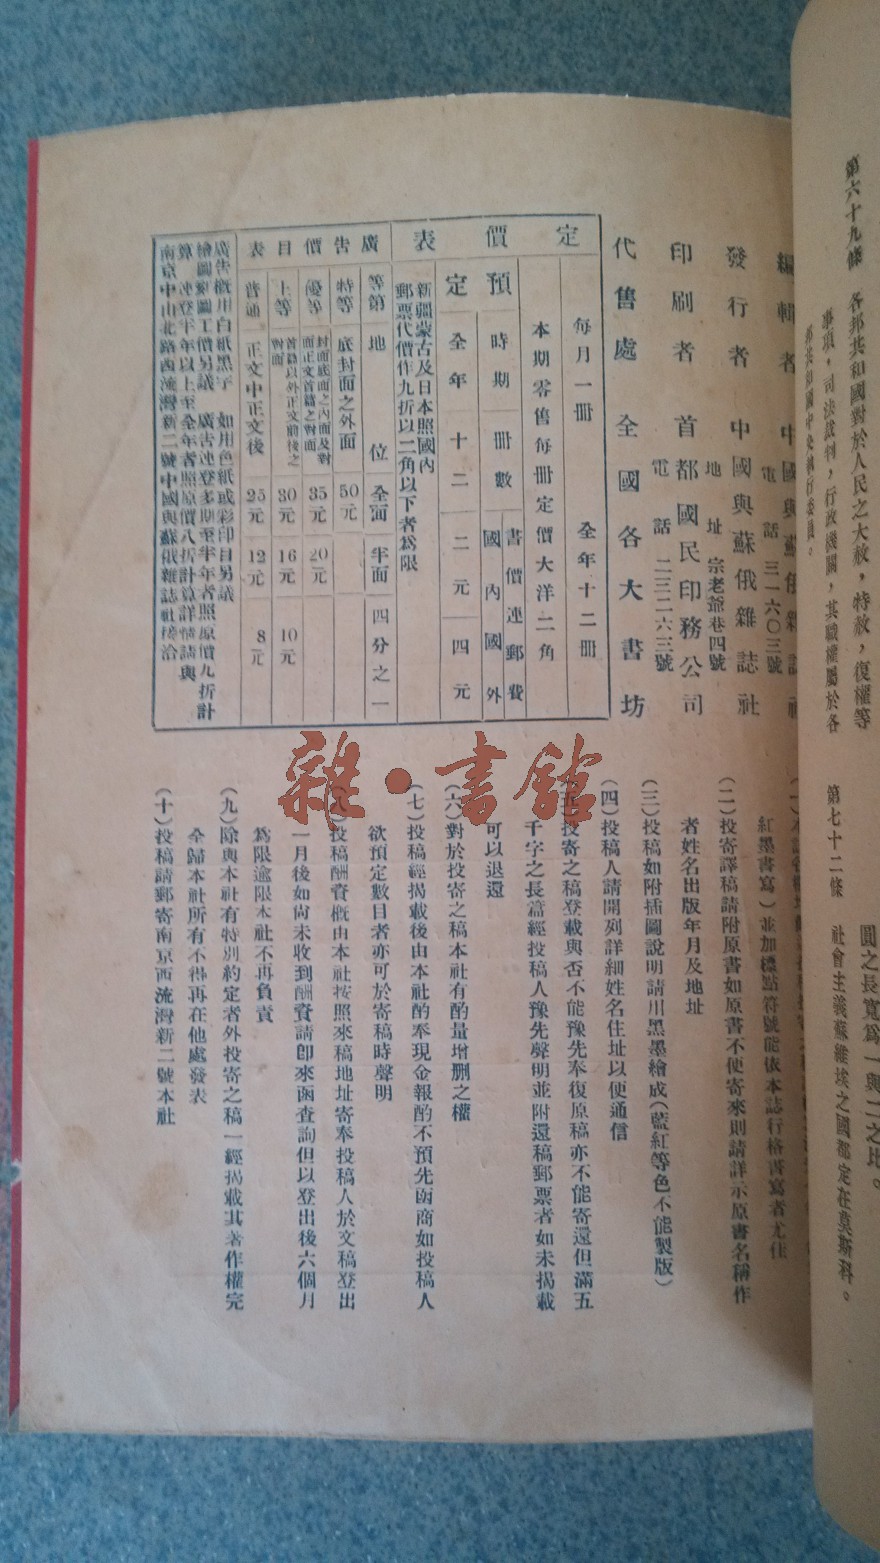 第六十九條　各邦共和國對於人民之大赦，特赦，復權等
事項，司法裁判，行政機關，其職權屬於各
邦共和國中央執行委員。
圓之長寬爲一與二之比。
第七十二條　社會主義蘇維埃之國都定在莫斯科。
編輯者　中國與蘇俄雜誌社
電話　三一六〇三號
發行者　中國與蘇俄雜誌社
地址　宗老爺巷四號
印刷者　首都國民印務公司
電話　二三二六三號
代售處　全國各大書坊
定價表
每月一冊　全年十二冊
本期零售每冊定價大洋二角
預定
時期　冊數　書價連郵費
國內　國外
全年　十二　二元　四元
新疆蒙古及日本照國內
郵票代價作九折以二角以下者爲限
廣告價目表
等第　地位　全面　半面　四分之一
特等　底封面之外面　50元
優等　封面底面之內面及對面正文首篇之對面　35元　20元
上等　首篇以外正文前後之對面　30元　16元　10元
普通　正文中正文後　25元　12元　8元
廣告概用白紙黑字　如用色紙或彩印目另議
繪圖刻圖工價另議　廣告連登多期至半年者照原價九折計
算　連登半年以上至全年者照原價八折計算詳情請與
南京中山北路西流灣新二號中國與蘇俄雜誌社接洽
紅墨書寫）並加標點符號能依本誌行格書寫者尤佳
（二）投寄譯稿請附原書如原書不便寄來則請詳示原書名稱作
者姓名出版年月及地址
（三）投稿如附插圖說明請用黑墨繪成（藍紅等色不能製版）
（四）投稿人請開列詳細姓名住址以便通信
（五）投寄之稿登載與否不能豫先奉復原稿亦不能寄還但滿五
千字之長篇經投稿人豫先聲明並附還稿郵票者如未揭載
可以退還
（六）對於投寄之稿本社有酌量增刪之權
（七）投稿經揭載後由本社酌奉現金報酌不預先函商如投稿人
欲預定數目者亦可於寄稿時聲明
（八）投稿酬資概由本社按照來稿地址寄奉投稿人於文稿登出
一月後如尚未收到酬資請卽來函查詢但以登出後六個月
爲限逾限本社不再負責
（九）除與本社有特別約定者外投寄之稿一經揭載其著作權完
全歸本社所有不得再在他處發表
（十）投稿請郵寄南京西流灣新二號本社
雜·書館